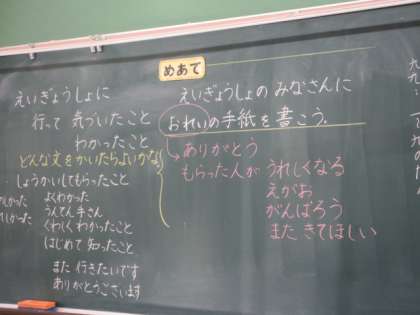 めあて
えいぎょうしょの みなさんに
おれいの手紙を書こう.
ありがとう
もらった人が うれしくなる
えがお
がんばろう
また きてほしい
えいぎょうしょに
行って 気づいたこと
わかったこと
どんな文をかいたらよいかな
しょうかいしてもらったこと
よくわかった
うんてん手さん
くわしくわかったこと
はじめて 知ったこと
また 行きたいです
ありがとうございます